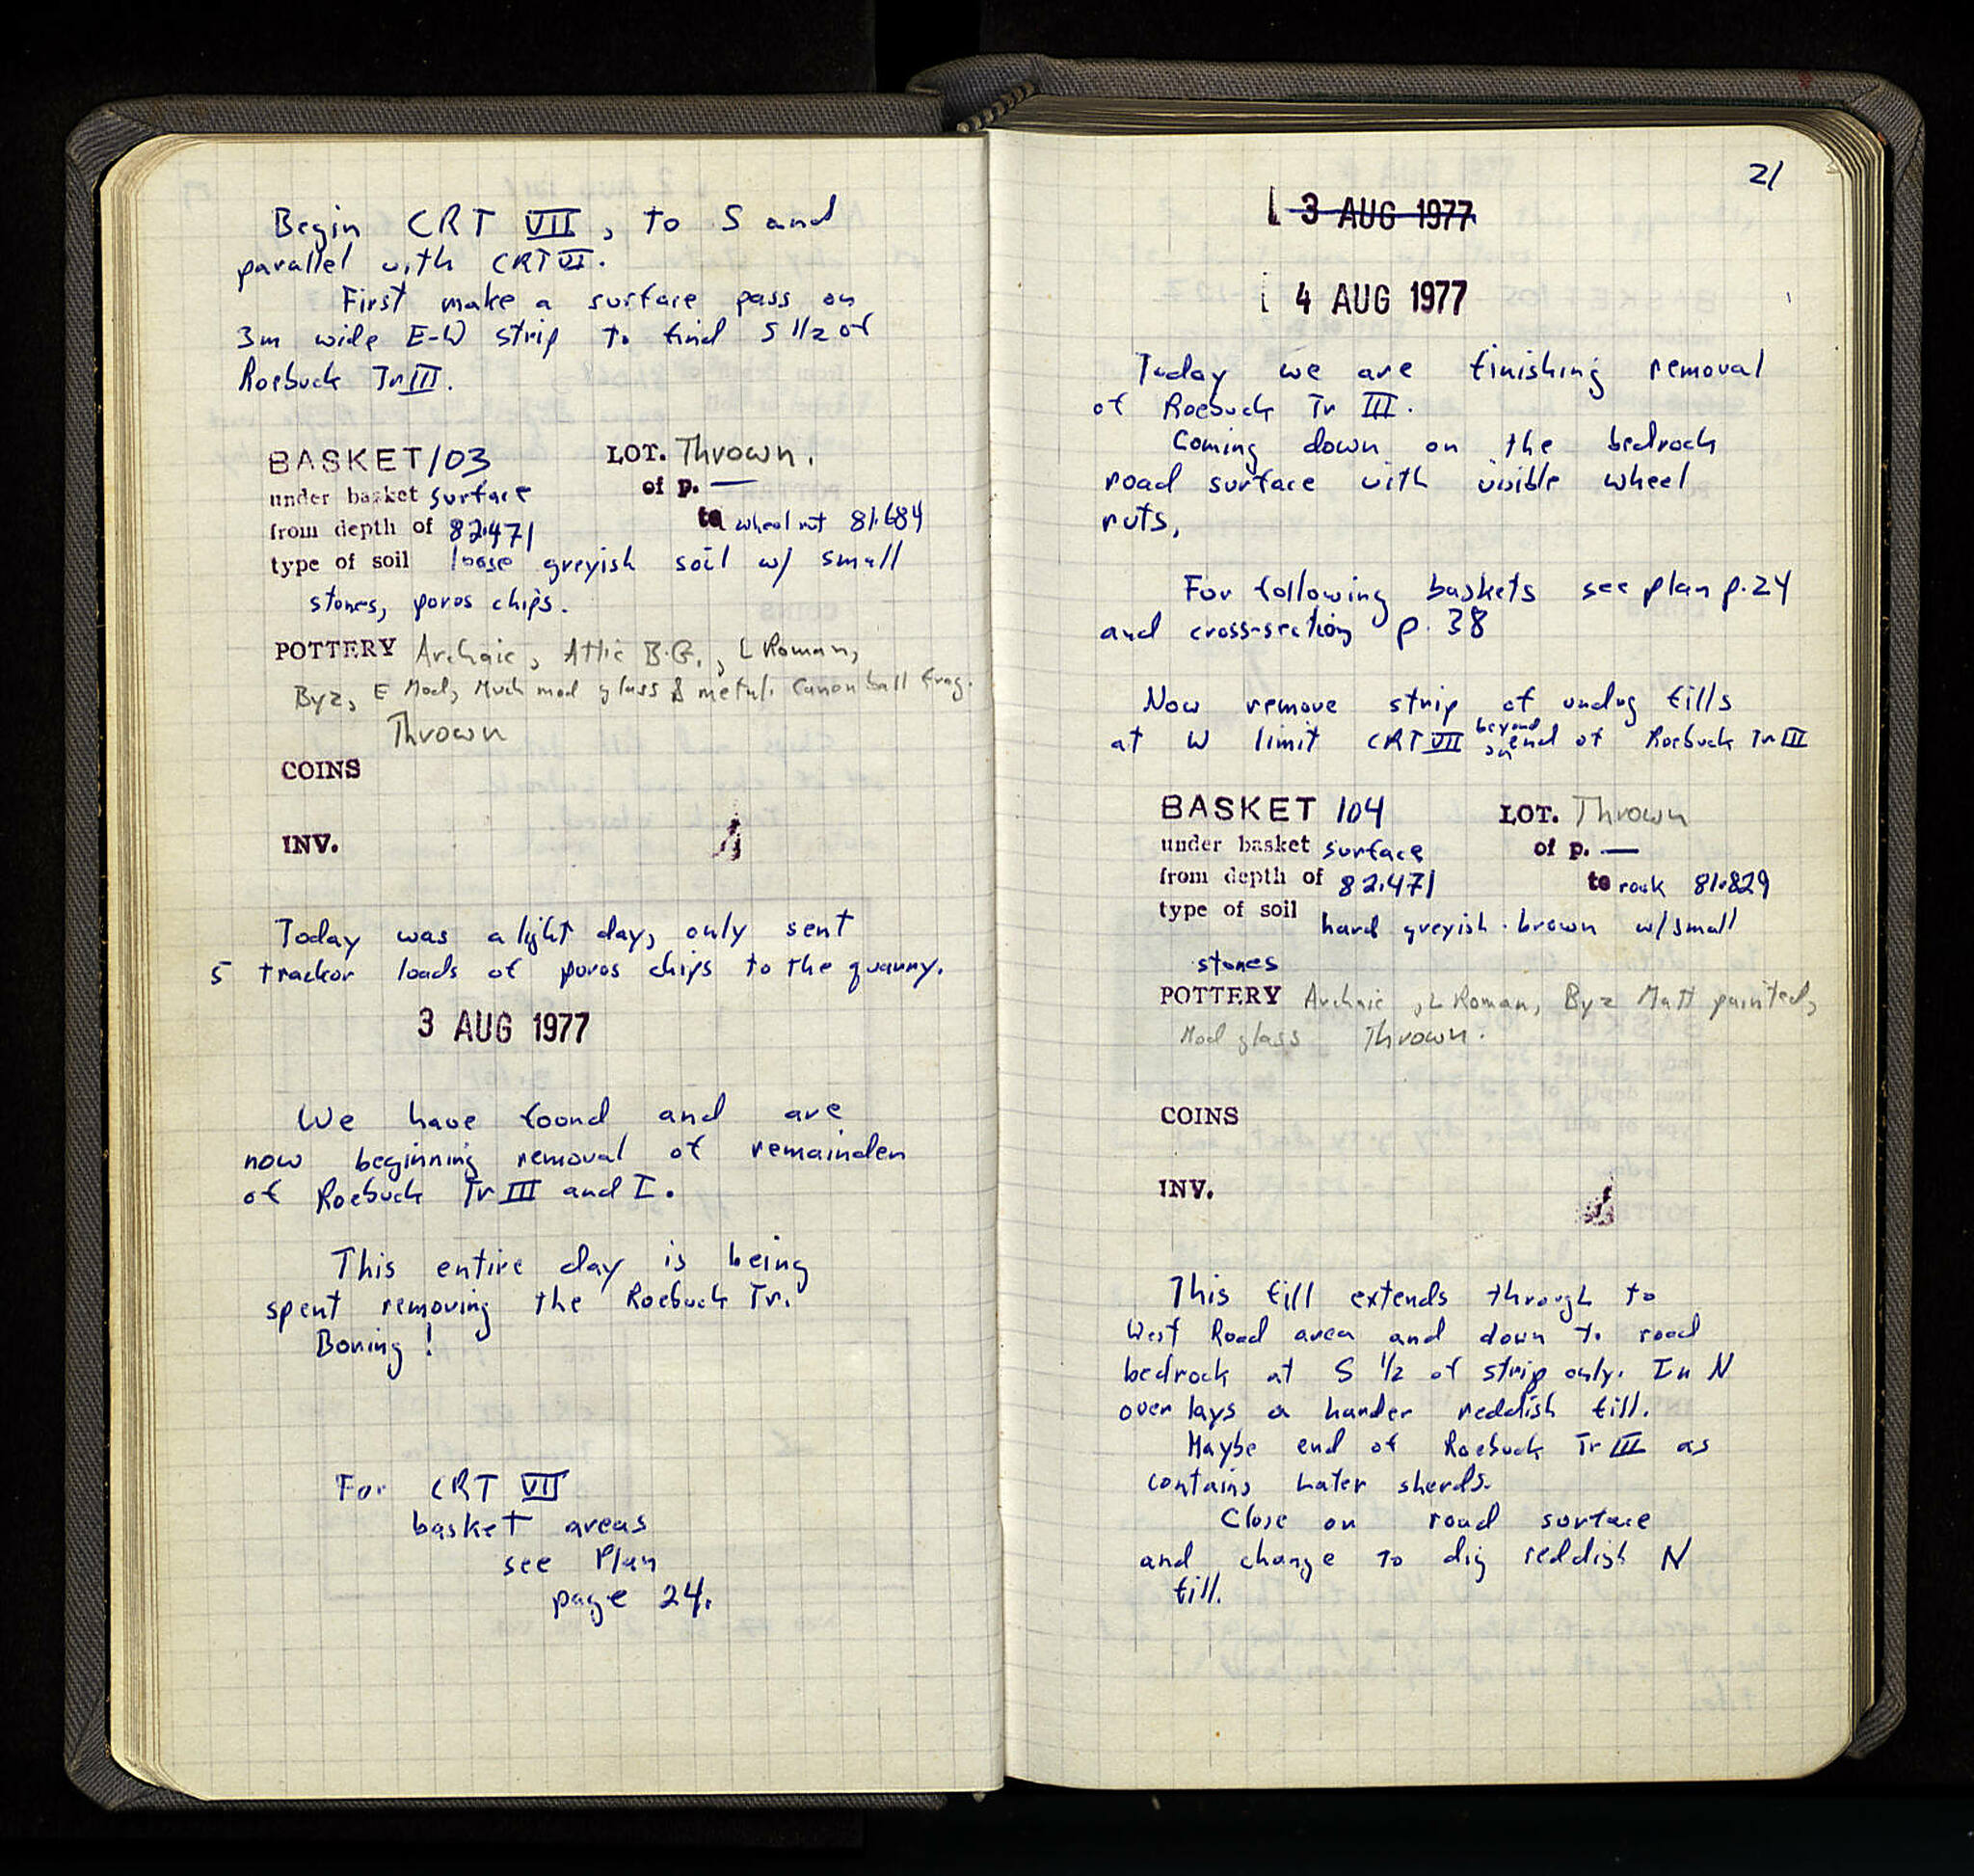 Begin CRT VII, to S and
parallel with CRT VI.
First make a surface pass on
3m wide E-W strip to find S 1/2 of
Roebuck Tr III.
BASKET 103 LOT. Thrown.
under basket surface of p. —
from depth of 82.471 to wheel rut 81.684
type of soil loose greyish soil w/ small
stones, poros chips.
POTTERY Archaic, Attic B.G., L Roman,
Byz, E Mod, Much mod glass & metal. Canon ball frag.
Thrown
COINS
INV.
Today was a light day, only sent
5 tracktor loads of poros chips to the quarry.
3 AUG 1977
We have found and are
now beginning removal of remainder
of Roebuck Tr III and I.
This entire day is being
spent removing the Roebuck Tr.
Boring!
For CRT VII
basket areas
see Plan
page 24.
21
3 AUG 1977
4 AUG 1977
Today we are finishing removal
of Roebuck Tr III.
Coming down on the bedrock
road surface with visible wheel
ruts,
For following baskets see plan p.24
and cross-section p. 38
Now remove strip of undug fills
at W limit CRT VII beyond end of Roebuck Tr III
BASKET 104 LOT. Thrown
under basket surface of p. —
from depth of 82.471 to rock 81.829
type of soil hard greyish-brown w/small
stones
POTTERY Archaic, L Roman, Byz Matt painted,
Mod glass Thrown.
COINS
INV.
This fill extends through to
West Road area and down to road
bedrock at S 1/2 of strip only. In N
over lays a harder reddish fill.
Maybe end of Roebuck Tr III as
contains Later sherds.
Close on road surface
and change to dig reddish N
fill.